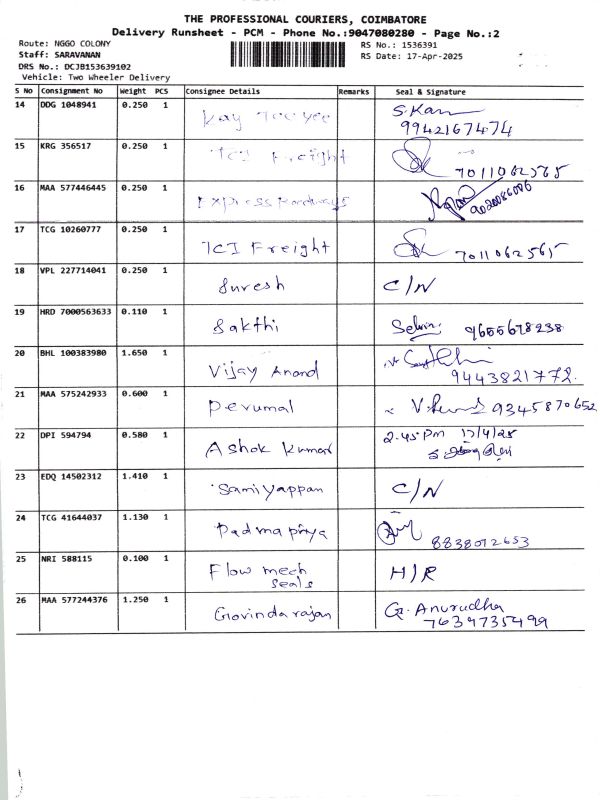 THE PROFESSIONAL COURIERS, COIMBATORE
Delivery Runsheet - PCM - Phone No.:9047080280 - Page No.:2
Route: NGGO COLONY
Staff: SARAVANAN
DRS No.: DCJB153639102
Vehicle: Two Wheeler Delivery
RS No.: 1536391
RS Date: 17-Apr-2025
S No Consignment No Weight PCS Consignee Details Remarks Seal & Signature
14 DDG 1048941 0.250 1 Kay Tee Yee S. Kan
9942167474
15 KRG 356517 0.250 1 TCI Freight 7011062565
16 MAA 577446445 0.250 1 Express Roadways
17 TCG 10260777 0.250 1 TCI Freight 7011062565
18 VPL 227714041 0.250 1 Suresh C/N
19 HRD 7000563633 0.110 1 Sakthi Selvi 9655678238
20 BHL 100383980 1.650 1 Vijay Anand
9443821772.
21 MAA 575242933 0.600 1 Perumal 9345870652
22 DPI 594794 0.580 1 Ashok Kumar 2.45 Pm 17/4/25
23 EDQ 14502312 1.410 1 Samiyappan C/N
24 TCG 41644037 1.130 1 Padma priya
8838072653
25 NRI 588115 0.100 1 Flow mech H/R
seals
26 MAA 577244376 1.250 1 Govindarajan G. Anurudha
7639735499